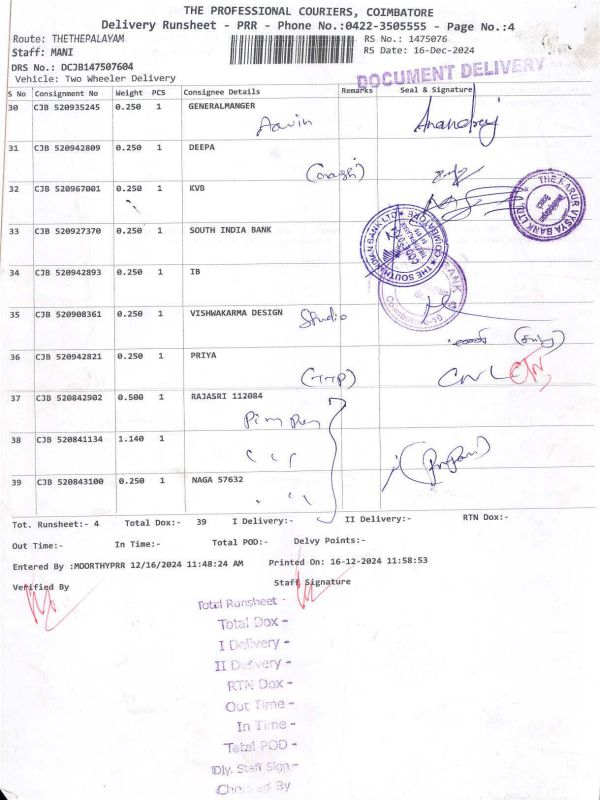 THE PROFESSIONAL COURIERS, COIMBATORE
Delivery Runsheet - PRR - Phone No.:0422-3505555 - Page No.:4
Route: THETHEPALAYAM RS No.: 1475076
Staff: MANI RS Date: 16-Dec-2024
DRS No.: DCJB147507604
Vehicle: Two Wheeler Delivery
DOCUMENT DELIVERY
S No Consignment No Weight PCS Consignee Details Remarks Seal & Signature
30 CJB 520935245 0.250 1 GENERALMANGER
Aavin
31 CJB 520942809 0.250 1 DEEPA
32 CJB 520967001 0.250 1 KVB
33 CJB 520927370 0.250 1 SOUTH INDIA BANK
34 CJB 520942893 0.250 1 IB
35 CJB 520908361 0.250 1 VISHWAKARMA DESIGN Studio
36 CJB 520942821 0.250 1 PRIYA
(TTP)
37 CJB 520842902 0.500 1 RAJASRI 112084
38 CJB 520841134 1.140 1
39 CJB 520843100 0.250 1 NAGA 57632
Tot. Runsheet:- 4 Total Dox:- 39 I Delivery:- II Delivery:- RTN Dox:-
Out Time:- In Time:- Total POD:- Delvy Points:-
Entered By :MOORTHYPRR 12/16/2024 11:48:24 AM Printed On: 16-12-2024 11:58:53
Verified By Staff Signature
Total Runsheet -
Total Dox -
I Delivery -
II Delivery -
RTN Dox -
Out Time -
In Time -
Total POD -
Dly. Staff Sign -
Checked By